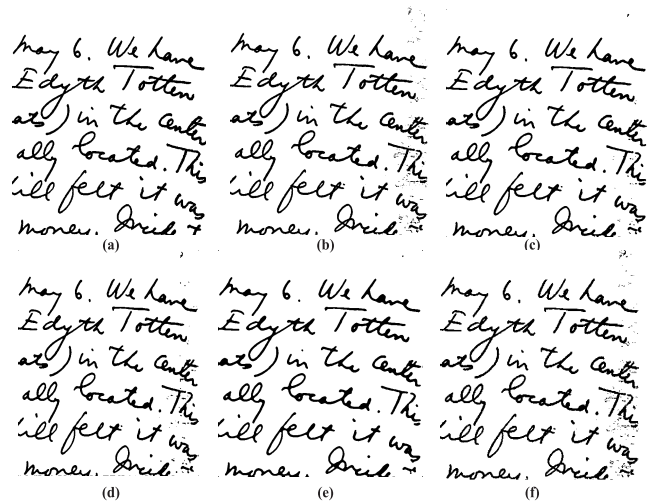 may 6. We have
Edyth Totten
ats) in the center
ally located. This
ill felt it was
money. Inside +
(a)
may 6. We have
Edyth Totten
ats) in the center
ally located. This
ill felt it was
money. Inside +
(b)
may 6. We have
Edyth Totten
ats) in the center
ally located. This
ill felt it was
money. Inside +
(c)
may 6. We have
Edyth Totten
ats) in the center
ally located. This
ill felt it was
money. Inside +
(d)
may 6. We have
Edyth Totten
ats) in the center
ally located. This
ill felt it was
money. Inside +
(e)
may 6. We have
Edyth Totten
ats) in the center
ally located. This
ill felt it was
money. Inside +
(f)